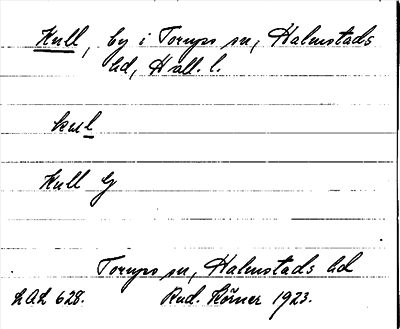 Kull, by i Torups sn, Halmstads
hd, Hall. l.
kul
Kull
Torups sn, Halmstads hd
LAL 628. Rud. Körner 1923.